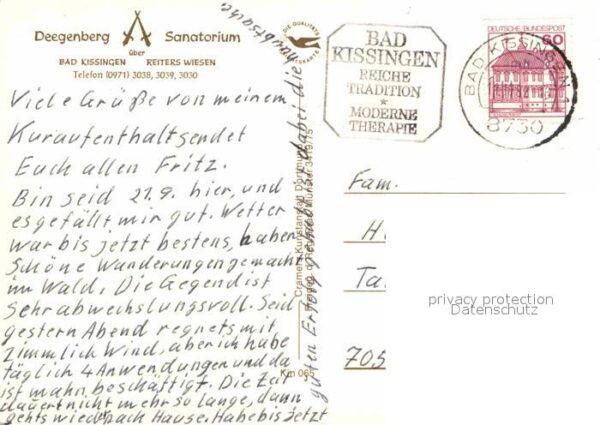 Deegenberg Sanatorium
über
BAD KISSINGEN REITERS WIESEN
Telefon (0971) 3038, 3039, 3030
Viele Grüße von meinem
Kuraufenthalt sendet
Euch allen Fritz.
Bin seid 21.9. hier, und
es gefällt mir gut. Wetter
war bis jetzt bestens, haben
Schöne Wanderungen gemacht
im Wald. Die Gegend ist
sehr abwechslungsvoll. Seid
gestern Abend regnets mit
Zimmlich Wind, aber ich habe
täglich 4 Anwendungen und da
ist mahn beschäftigt. Die Zeit
dauert nicht mehr so lange, dann
gehts wieder nach Hause. Habe bis jetzt
guten Erfolg gehabt dabei die
hauptsache
DIE QUALITÄTS
KARTE
Cramers Kunstanstalt Dortmund
Km 066
BAD
KISSINGEN
REICHE
TRADITION
*
MODERNE
THERAPIE
DEUTSCHE BUNDESPOST
60
BAD KISSINGEN 1
8730
Fam.
H
Ta
705
privacy protection
Datenschutz